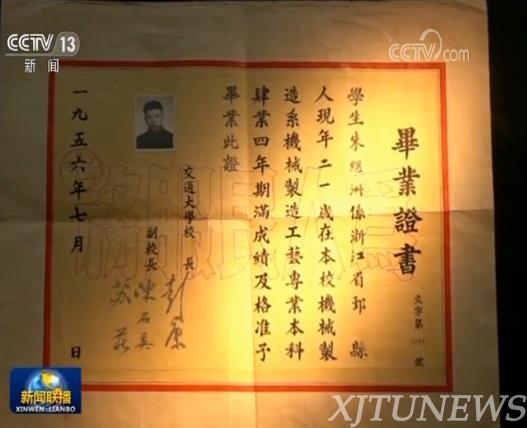 CCTV 13
新闻
CCTV.com
畢業證書
交字第
號
學生朱繼洲係浙江省鄞縣
人現年二一歲在本校機械製
造系機械製造工藝專業本科
肄業四年期滿成績及格准予
畢業此證
交通大學校長 彭康
副校長 陳石英
蘇莊
一九五六年七月 日
為人民服務
新闻联播
XINWEN LIANBO
XJTUNEWS